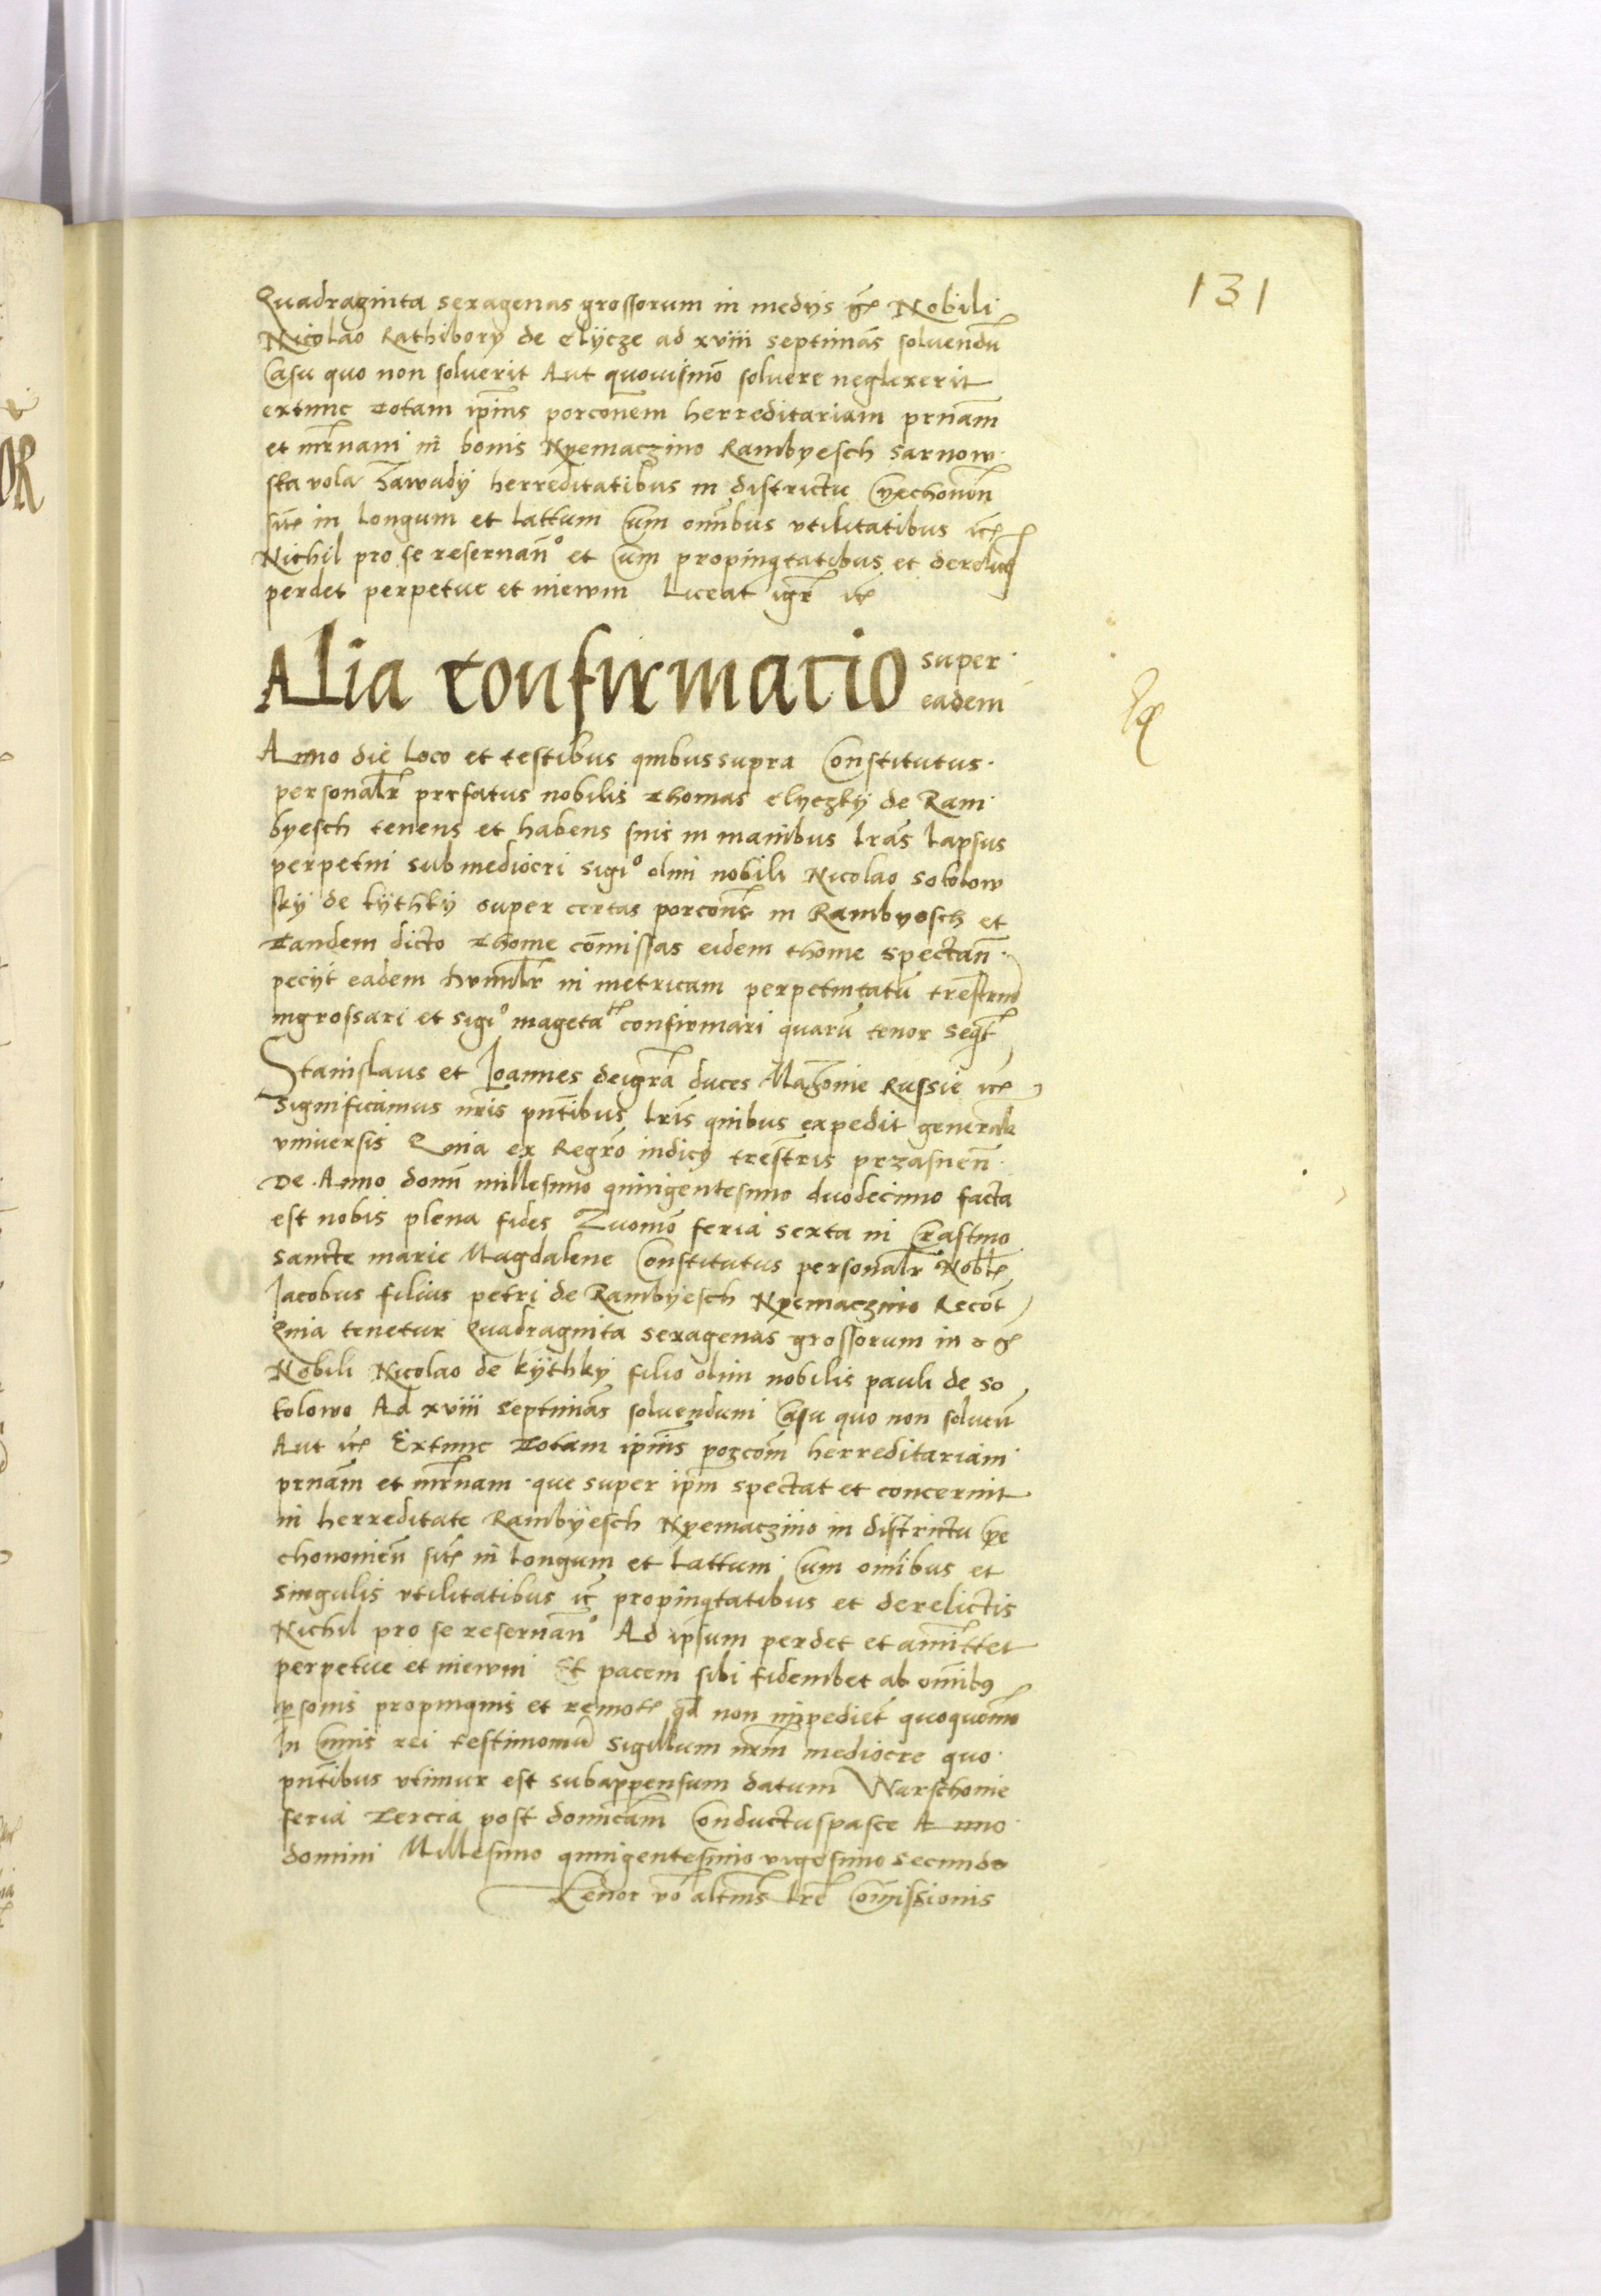 131
Quadraginta sexagenas grossorum in medys gr̄ Nobili
Nicolao Rathibory de elycze ad xviii septimās soluendū
Casu quo non soluerit Aut quouismō soluere neglexerit
extunc totam ip̄ius porcōnem herreditariam pr̄nam
et mr̄nam in bonis Nyemaczino Rambyesch Sarnow
ska vola Zawady herreditatibus in districtu Cyechonōn
sit̄ in longum et lattum Cum om̄ibus vtilitatibus ic̄
Nichil pro se reseruan̄o et Cum propinq̄tatibus et derelict
perdet perpetue et in ewm Liceat igr̄ ic̄
Alia confirmatio super
eadem
Anno die loco et testibus quibus supra Constitutus
personalr̄ prefatus nobilis Thomas elyczky de Ram
byesch tenens et habens suis in manibus lrās lapsus
perpetui sub mediocri sigio olim nobili Nicolao sokolow
sky de kythky super certas porcōnes in Rambyesch et
Tandem dicto Thome cōmissas eidem thome spectan̄
peciit eadem humilr̄ in metricam perpetuitatū trestriū
ingrossari et sigio mageta confirmari quarū tenor seqt̄
Stanislaus et Joannes dei grā duces Mazouie Russie ic̄
Significamus nr̄is pn̄tibus lr̄is quibus expedit generalr
vniuersis Quia ex Regrō iudicy trestris przasnen̄
De Anno domn̄ millesimo quingentesimo duodecimo facta
est nobis plena fides Zuomō feria sexta in Crastino
sancte marie Magdalene Constitutus personalr̄ Nobl̄
Jacobus filius petri de Rambyesch Nyemaczino Recot̄
Quia tenetur Quadraginta sexagenas grossorum in
Nobili Nicolao de kythky filio olim nobilis pauli de so
kolowo Ad xviii septimās soluendum Casu quo non soluerit
Aut ic̄ Extunc Totam ip̄ius porcōm herreditariam
pr̄nam et mr̄nam que super ip̄m spectat et concernit
in herreditate Rambyesch Nyemaczino in districtu Cye
chonouien̄ sit̄ in longum et lattum Cum om̄ibus et
singulis vtilitatibus ic̄ propinq̄tatibus et derelictis
Nichil pro se reseruan̄o Ad ipsum perdet et amittet
perpetue et in ewm Et pacem sibi fidembet ab om̄ibus
personis propinquis et remot̄ qd̄ non impediet̄ quoquomō
In Cuius rei testimoniū Sigillum nr̄m mediocre quo
pn̄tibus vtimur est subappensum datum Warschouie
feria Tercia post domicam̄ Conductus pasce Anno
domini Millesimo quingentesimo vigesimo secundo
Tenor vō altius lrē Com̄issionis